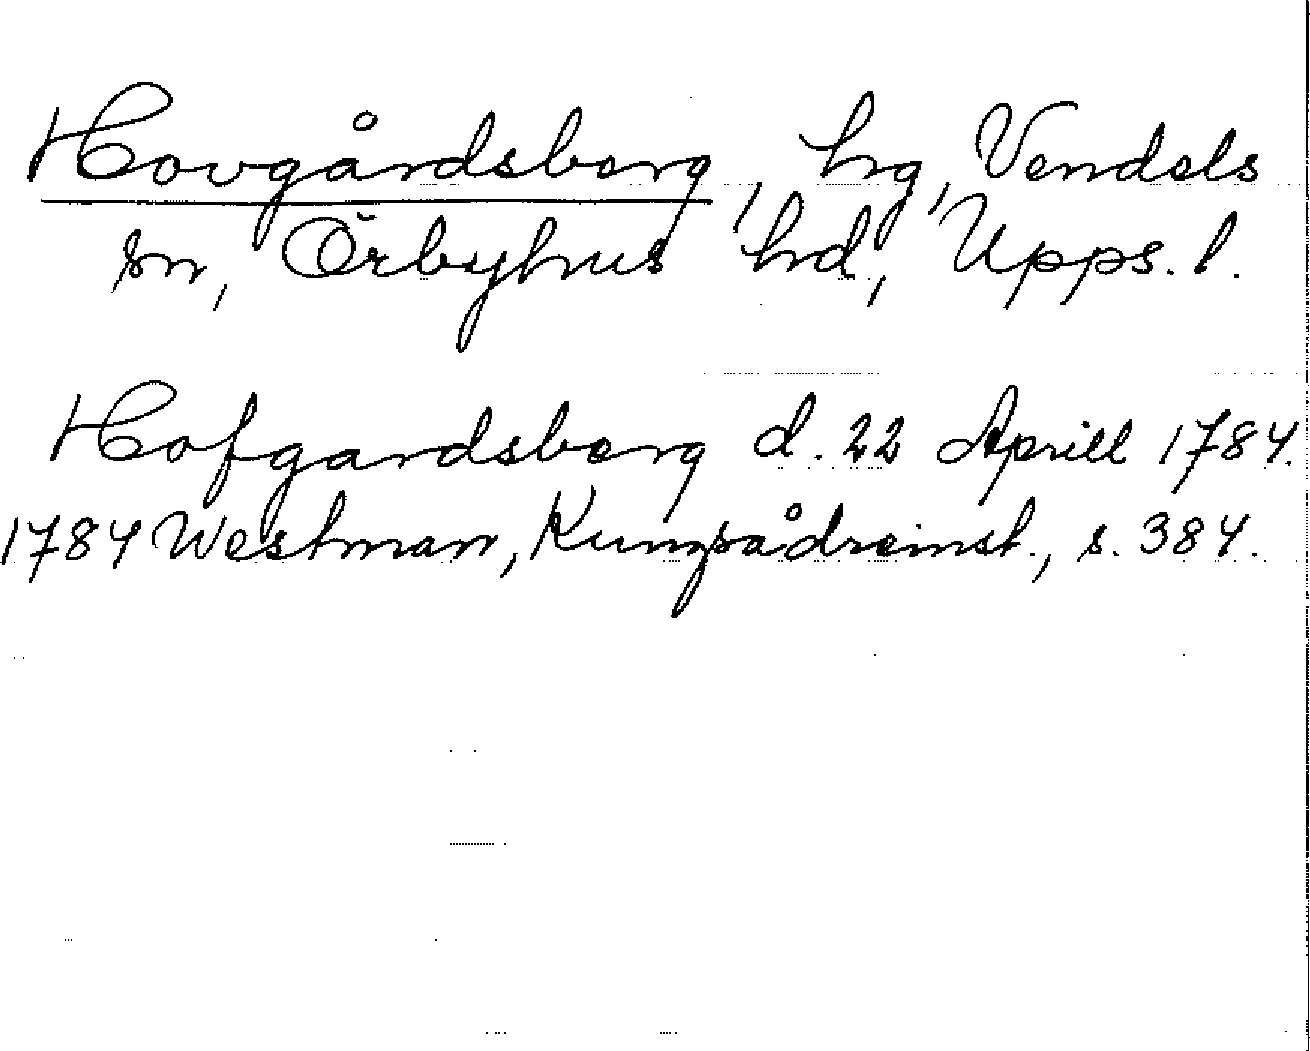 Hovgårdsberg, hrg, Vendels
sn, Örbyhus hd, Upps. l.
Hofgardsberg d. 22 Aprill 1784.
1784 Westman, Kungsådreinst., s. 384.